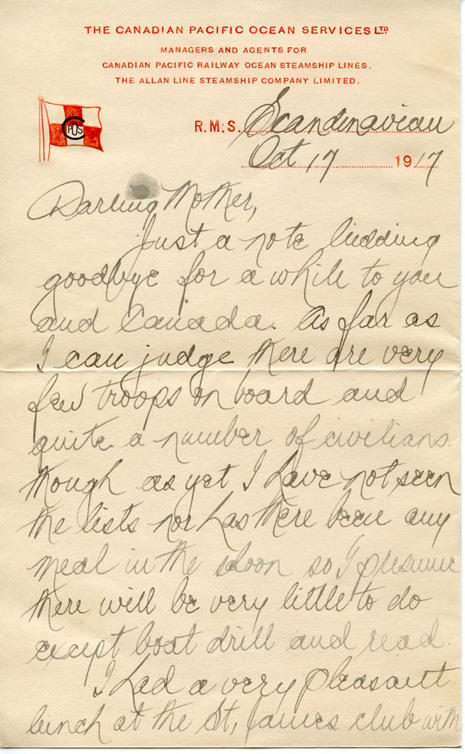 THE CANADIAN PACIFIC OCEAN SERVICES LTD
MANAGERS AND AGENTS FOR
CANADIAN PACIFIC RAILWAY OCEAN STEAMSHIP LINES.
THE ALLAN LINE STEAMSHIP COMPANY LIMITED.
CPOS
R.M.S. Scandinavian
Oct 17 1917
Darling Mother,
Just a note bidding
goodbye for a while to you
and Canada. As far as
I can judge there are very
few troops on board and
quite a number of civilians
though as yet I have not seen
the lists nor has there been any
meal in the saloon so I presume
there will be very little to do
except boat drill and read.
I had a very pleasant
lunch at the St. James club with